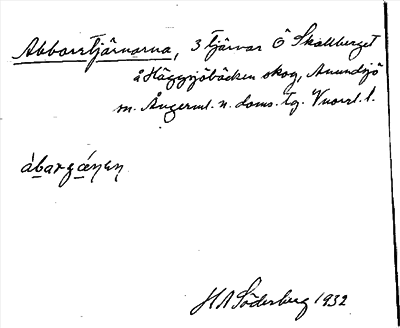 Abborrtjärnarna, 3 tjärnar Ö Skallberget
å Häggsjöbäcken skog, Anundsjö
m. Ångerml. n. doms. tg. Vnorrl. l.
àbargáṇeṇ
H A Söderberg 1932